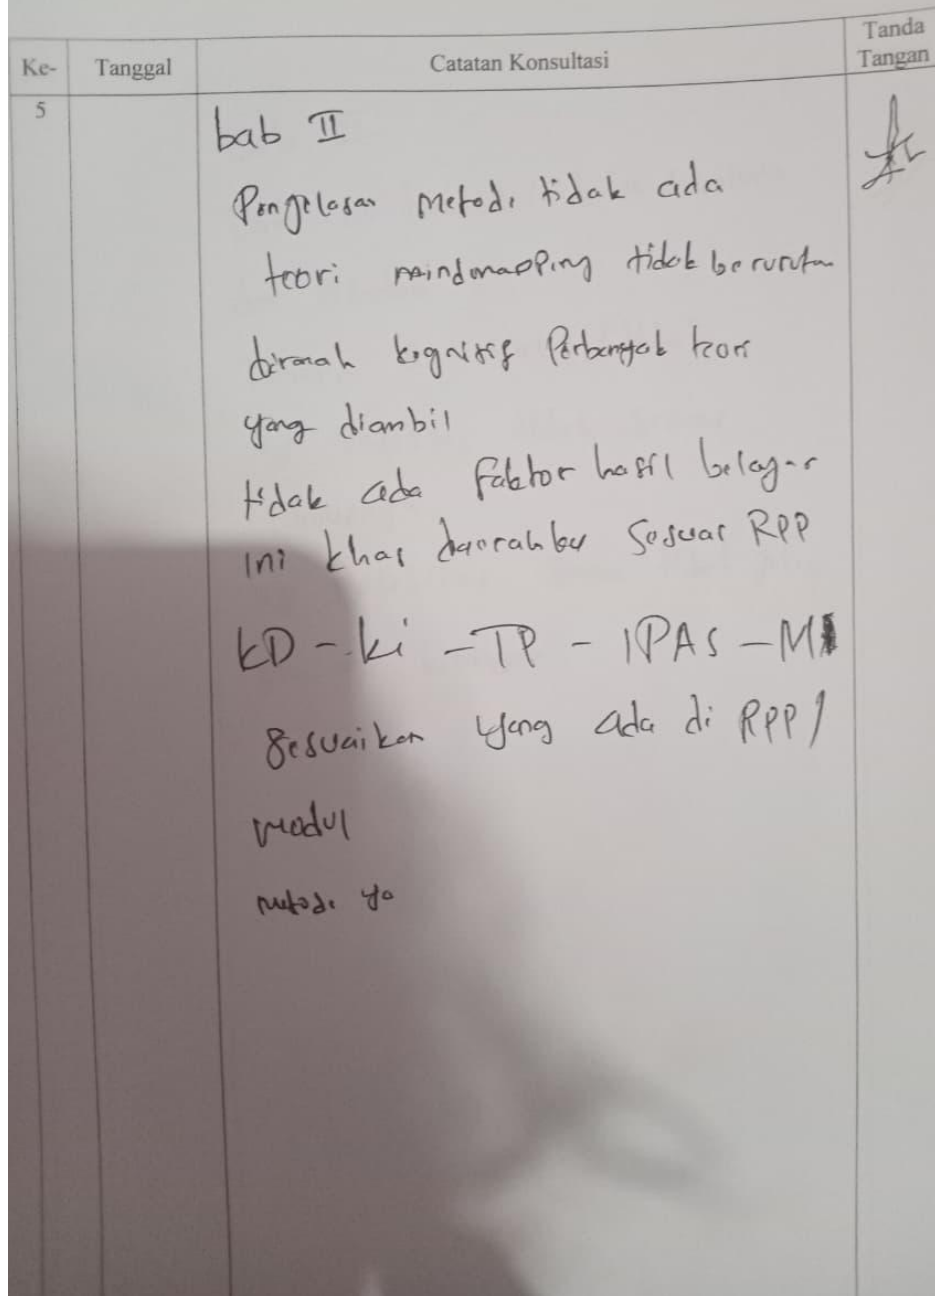 Ke- Tanggal Catatan Konsultasi Tanda Tangan
5
bab II
Pengelasan metode tidak ada
teori mindmapping tidak berurutan
diranah kognitif Perbanyak teori
yang diambil
tidak ada faktor hasil belajar
ini khas daerahku sesuai RPP
KD - ki - TP - IPAS - MI
sesuaikan yang ada di RPP /
modul
metode ya